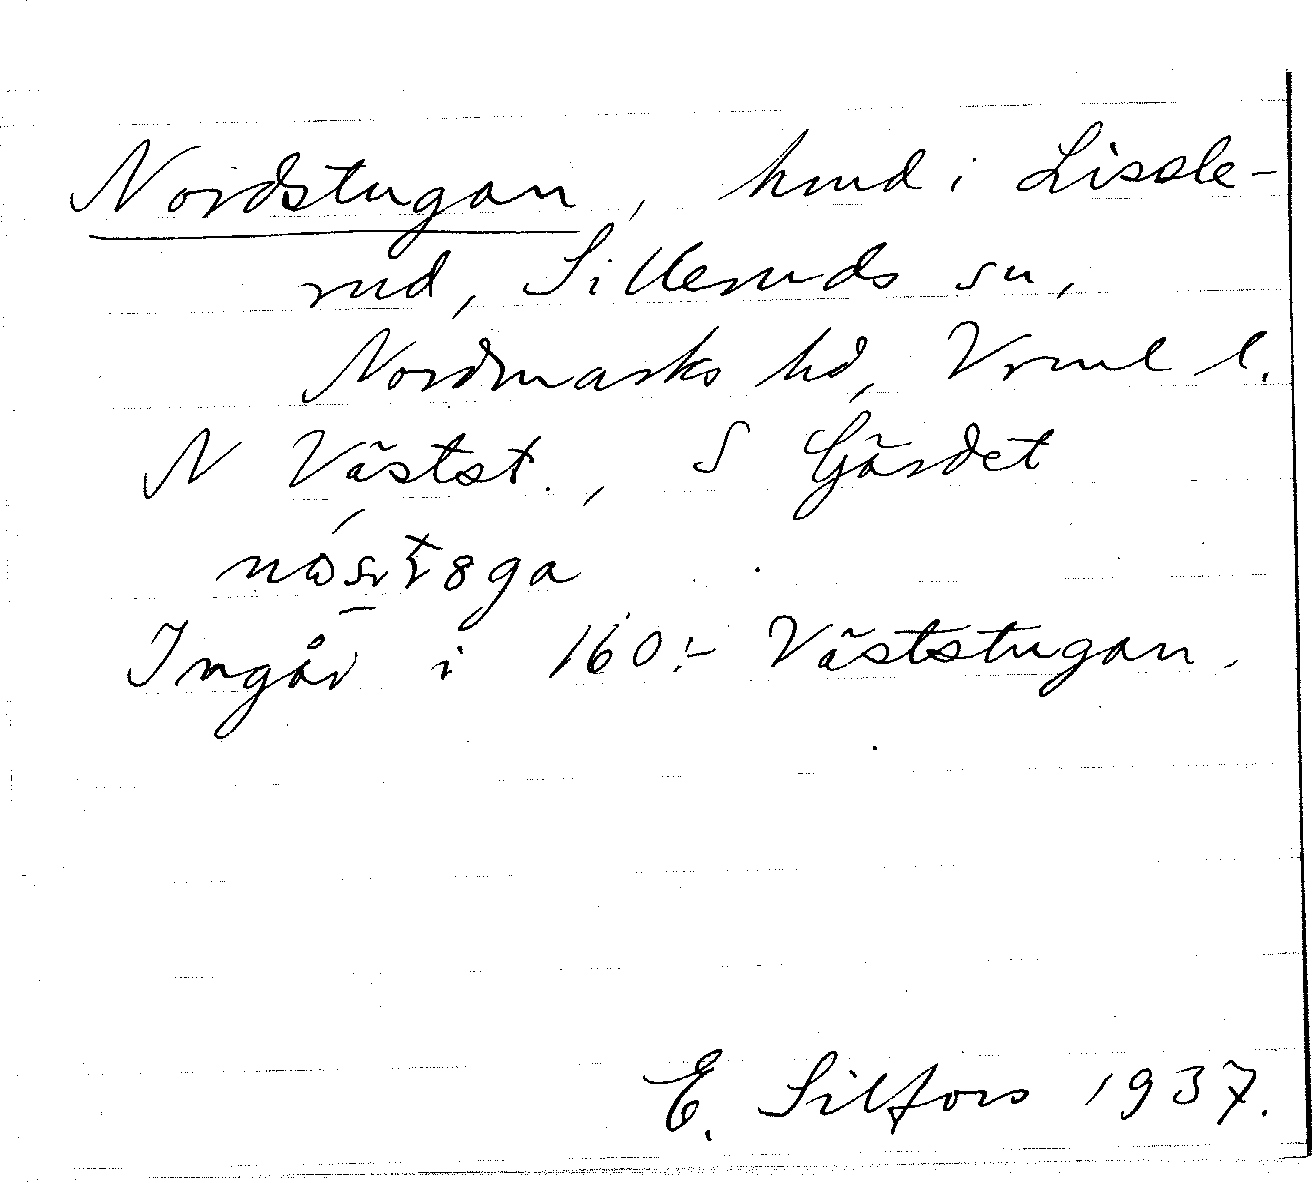 Nordstugan, hmd i Lissle-
rud, Silleruds sn,
Nordmarks hd, Vrml l.
N Västst., S Gärdet
Ingår i 160:- Väststugan.
E. Silfors 1937.